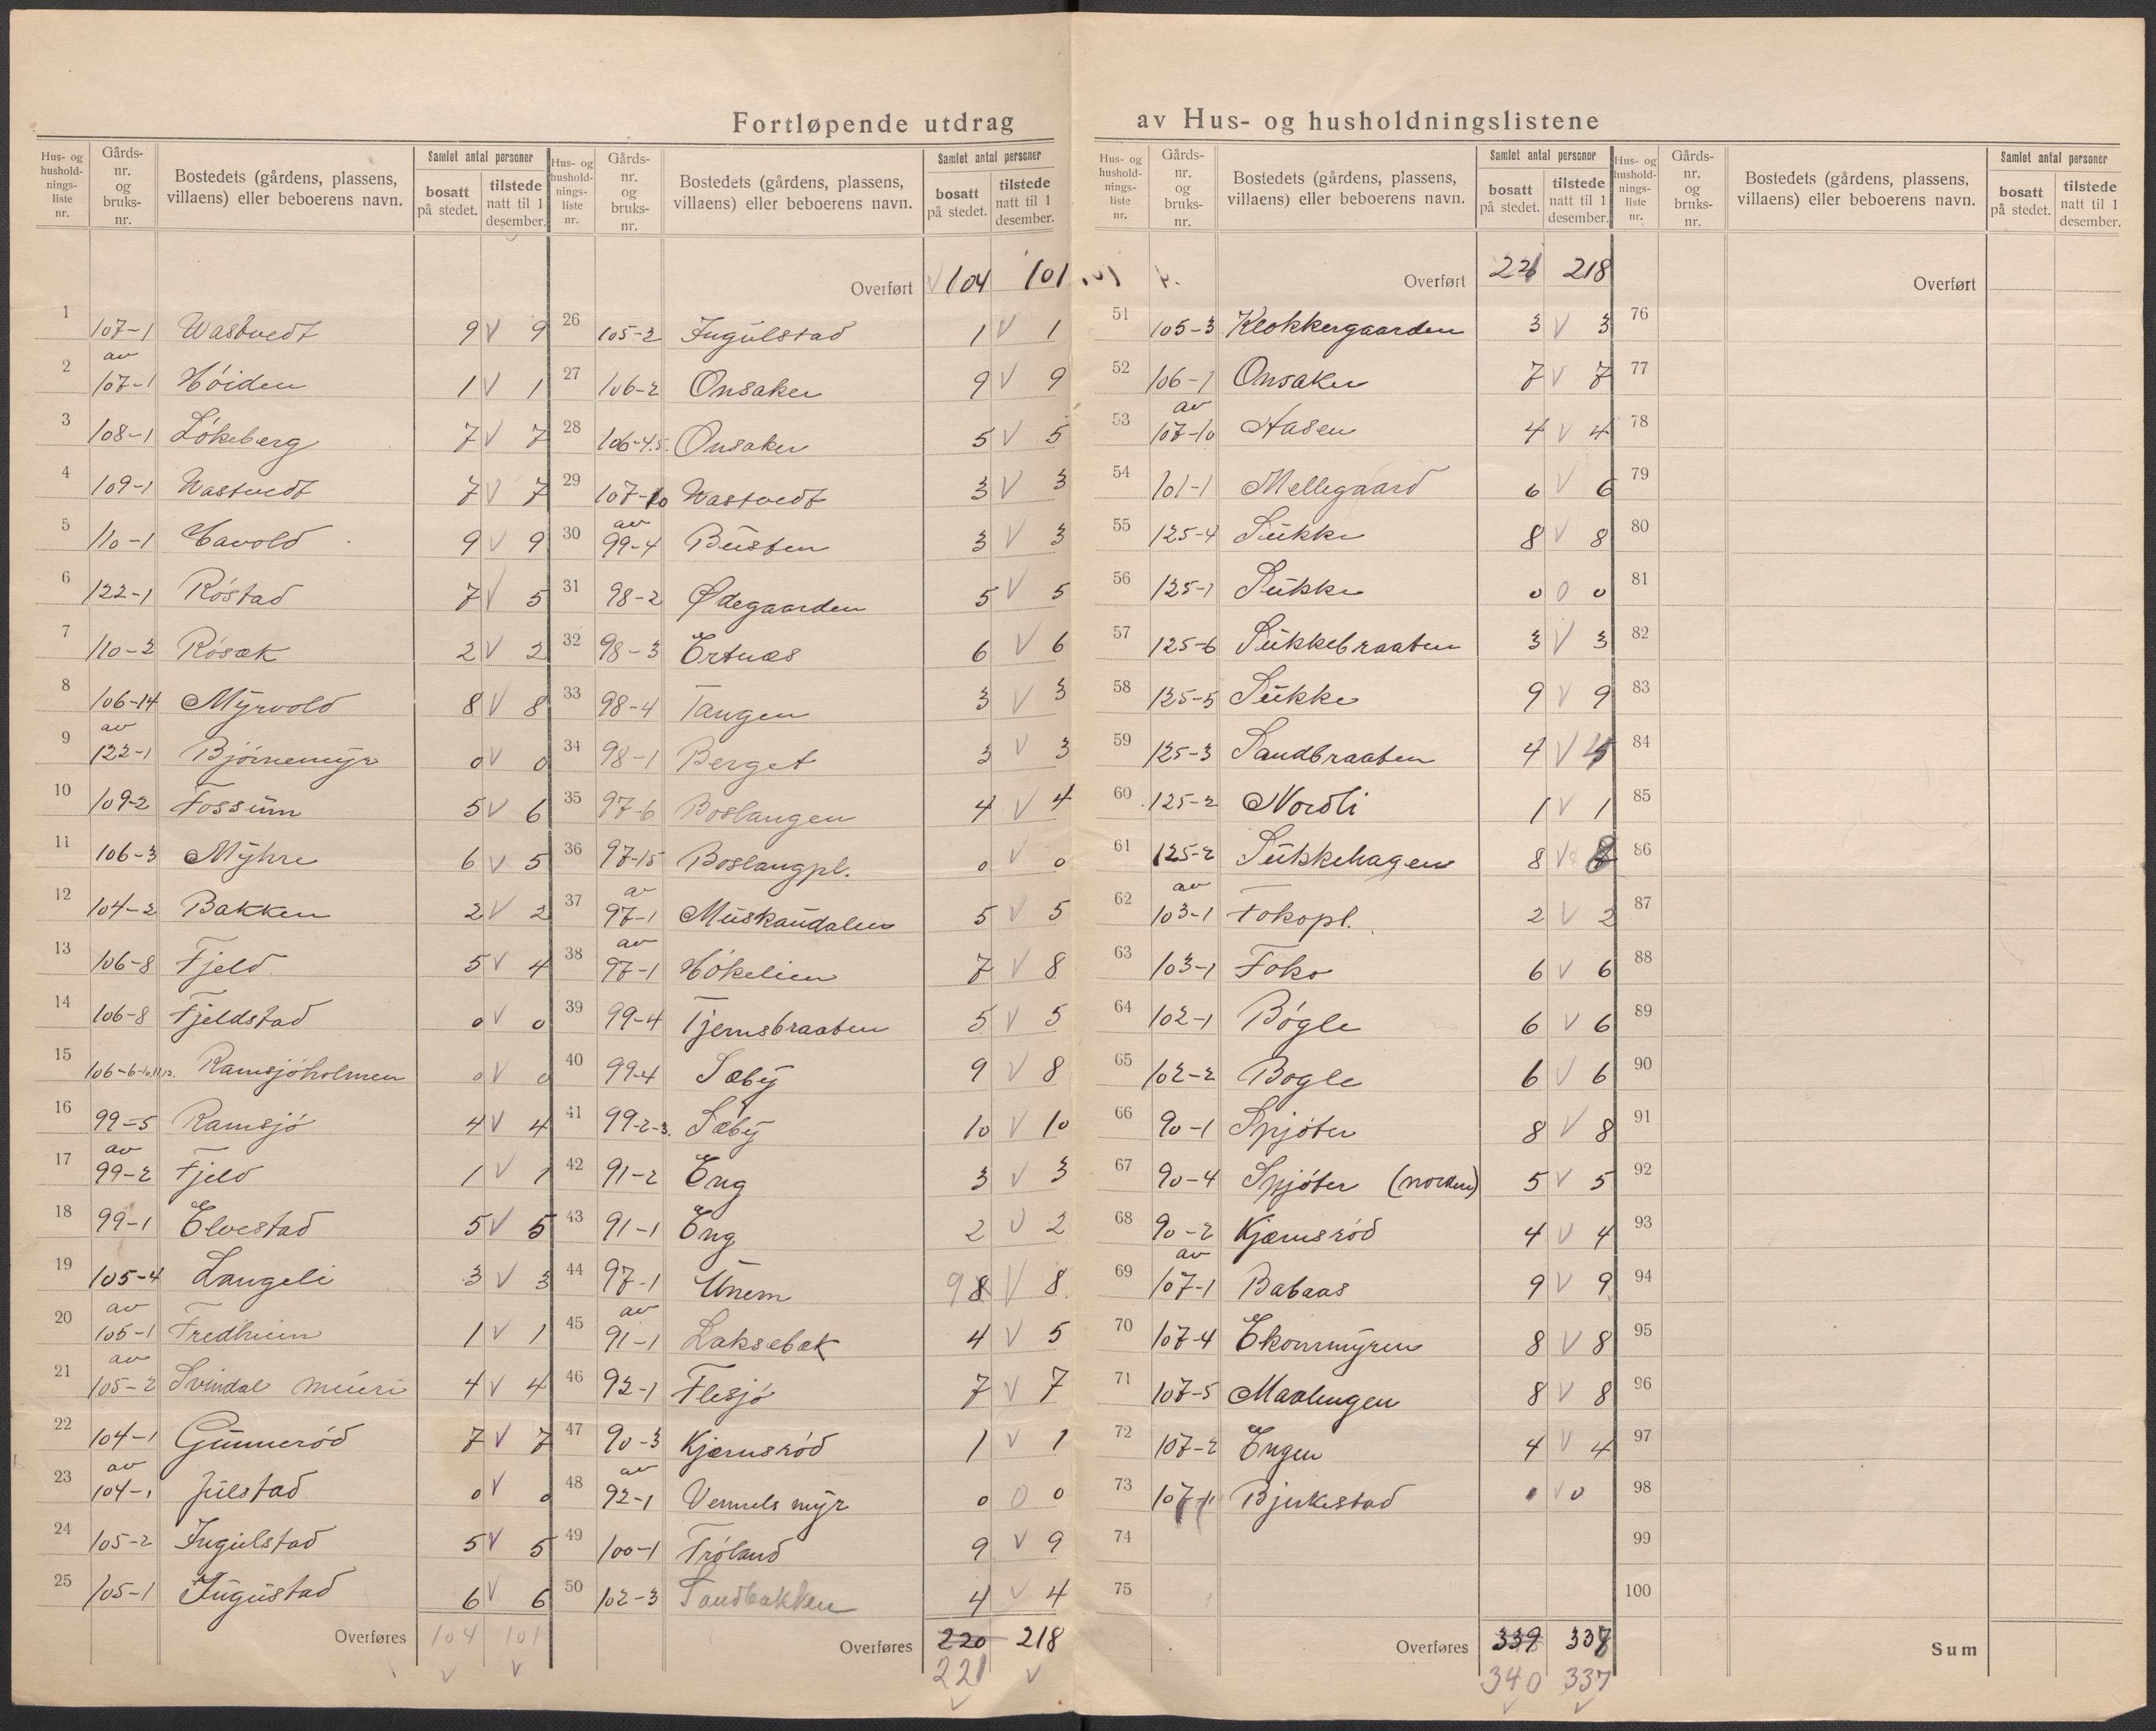 Fortløpende utdrag av Hus- og husholdningslistene
Hus- og hushold-nings-liste nr. Gårds-nr. og bruks-nr. Bostedets (gårdens, plassens, villaens) eller beboerens navn. Samlet antal personer bosatt på stedet. tilstede natt til 1 desember.
1 107-1 Wastvedt 9 V 9
2 av 107-1 Höiden 1 V 1
3 108-1 Lökeberg 7 V 7
4 109-1 Wastvedt 7 V 7
5 110-1 Havold 9 V 9
6 122-1 Röstad 7 V 5
7 110-2 Rösæk 2 V 2
8 106-14 Myrvold 8 V 8
9 av 122-1 Bjørnemyr 0 V 0
10 109-2 Fossum 5 V 6
11 106-3 Myhre 6 V 5
12 104-2 Bakken 2 V 2
13 106-8 Fjeld 5 V 4
14 106-8 Fjeldstad 0 V 0
15 106-6-10.11.12. Ramsjöholmen 0 V 0
16 99-5 Ramsjö 4 V 4
17 av 99-2 Fjeld 1 V 1
18 99-1 Elvestad 5 V 5
19 105-4 Langeli 3 V 3
20 av 105-1 Fredheim 1 V 1
21 av 105-2 Svindal meieri 4 V 4
22 104-1 Gunneröd 7 V 7
23 av 104-1 Julstad 0 V 0
24 105-2 Ingulstad 5 V 5
25 105-1 Ingustad 6 V 6
Overføres 104 101
V V
Hus- og hushold-nings-liste nr. Gårds-nr. og bruks-nr. Bostedets (gårdens, plassens, villaens) eller beboerens navn. Samlet antal personer bosatt på stedet. tilstede natt til 1 desember.
Overført V 104 101
26 105-2 Ingulstad 1 V 1
27 106-2 Onsaker 9 V 9
28 106-4.5. Onsaker 5 V 5
29 107-10 Wastvedt 3 V 3
30 av 99-4 Bústen 3 V 3
31 98-2 Ødegaarden 5 V 5
32 98-3 Ertnæs 6 V 6
33 98-4 Tangen 3 V 3
34 98-1 Berget 3 V 3
35 97-6 Boslangen 4 V 4
36 97-15 Boslangpl. 0 V 0
37 av 97-1 Muskaudalen 5 V 5
38 av 97-1 Hökelien 7 V 8
39 99-4 Tjernsbraaten 5 V 5
40 99-4 Sæby 9 V 8
41 99-2-3. Sæby 10 V 10
42 91-2 Eng 3 V 3
43 91-1 Eng 2 V 2
44 97-1 Unem 9 8 V 8
45 av 91-1 Laksebæk 4 V 5
46 92-1 Flesjö 7 V 7
47 90-3 Kjærnsröd 1 V 1
48 av 92-1 Vennelsmyr 0 0 0
49 100-1 Tröland 9 V 9
50 102-3 Sandbakken 4 V 4
Overføres 220 218
221 V
V
Hus- og hushold-nings-liste nr. Gårds-nr. og bruks-nr. Bostedets (gårdens, plassens, villaens) eller beboerens navn. Samlet antal personer bosatt på stedet. tilstede natt til 1 desember.
Overført 221 218
51 105-3 Klokkergaarden 3 V 3
52 106-1 Onsaker 7 V 7
53 av 107-10 Aasen 4 V 4
54 101-1 Mellegaard 6 V 6
55 125-4 Sukke 8 V 8
56 125-1 Sukke 0 0 0
57 125-6 Sukkebraaten 3 V 3
58 125-5 Sukke 9 V 9
59 125-3 Sandbraaten 4 V
60 125-2 Nordli 1 V 1
61 125-2 Sukkehagen 8 V 8
62 av 103-1 Fokopl. 2 V 2
63 103-1 Foko 6 V 6
64 102-1 Bögle 6 V 6
65 102-2 Bögle 6 V 6
66 90-1 Spjöter 8 V 8
67 90-4 Spjöter (nordre) 5 V 5
68 90-2 Kjærnsröd 4 V 4
69 av 107-1 Babaas 9 V 9
70 107-4 Ekornmyren 8 V 8
71 107-5 Maalingen 8 V 8
72 107-2 Engen 4 V 4
73 107-11 Bjerkestad V 0
74
75
Overføres 339 338
340 337
V V
Hus- og hushold-nings-liste nr. Gårds-nr. og bruks-nr. Bostedets (gårdens, plassens, villaens) eller beboerens navn. Samlet antal personer bosatt på stedet. tilstede natt til 1 desember.
Overført
76
77
78
79
80
81
82
83
84
85
86
87
88
89
90
91
92
93
94
95
96
97
98
99
100
Sum